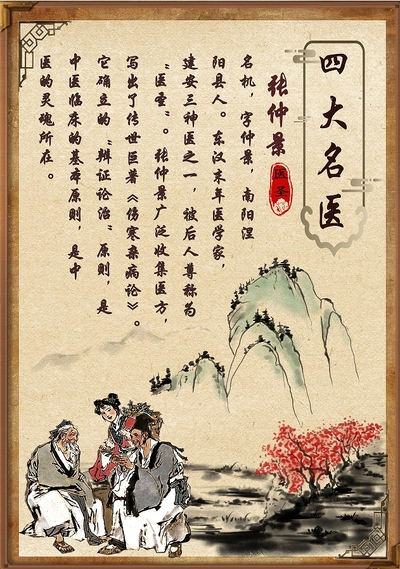 四大名医
张仲景
医圣
名机，字仲景，南阳涅
阳县人。东汉末年医学家，
建安三神医之一，被后人尊称为
“医圣”。张仲景广泛收集医方，
写出了传世巨著《伤寒杂病论》。
它确立的“辩证论治”原则，是
中医临床的基本原则，是中
医的灵魂所在。